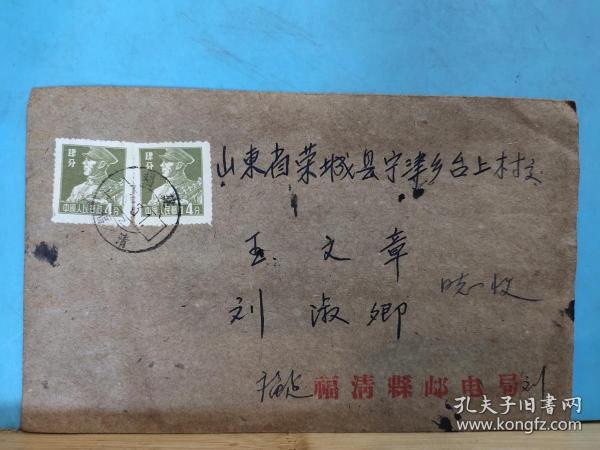 肆分
中國人民邮政 4分
肆分
中國人民邮政 4分
福
清
山東省荣城县宁津乡台上村交
王文章
刘淑卿
收
福清縣邮电局 刘
孔夫子旧书网
www.kongfz.com